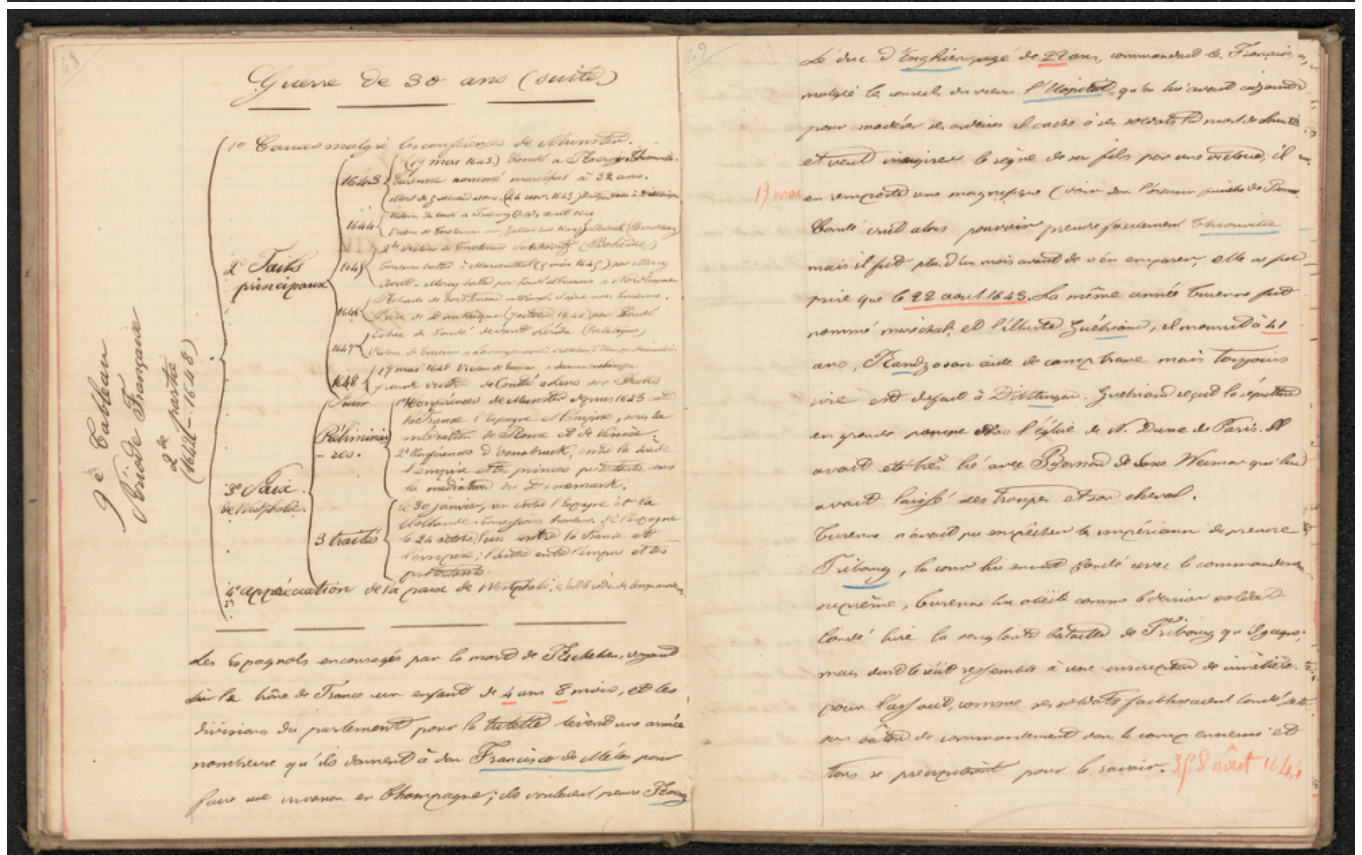 48
Guerre de 30 ans (suite)
9e Tableau
Période Française
2de partie
(1642-1648)
1o Causes malgré les conférences de Munster.
2o Faits
principaux
1643
(19 mai 1643) Condé à Rocroi, Thionville.
Turenne nommé maréchal à 32 ans.
1644
1645
Turenne battu à Marienthal (5 mai 1645) par Mercy
Août - Mercy battu par Condé et Turenne à Nordlingue
1646
Prise de Dunkerque (octobre 1646) par Condé
1647
Echec de Condé devant Lérida (Catalogne)
1648
17 mai 1648 Victoire de Turenne à
grande victoire de Condé à Lens sur
3o Paix
de Westphalie.
Préliminai
-res.
1o Conférences de Munster depuis 1643 entre
la France l'Espagne et l'empire, sous la
médiation de Rome et de Venise.
2o Conférences d'Osnabruck, entre la Suède
l'empire et les princes protestants, sous
la médiation du Danemark.
3 traités
le 30 janvier, un entre l'Espagne et la
Hollande concessions de l'Espagne
le 24 octobre l'un entre la France et
l'empire; l'autre entre l'empire et les
protestants
4o appréciation de la paix de Westphalie, c'est le code de
Les Espagnols encouragés par la mort de Richelieu, voyant
sur le trône de France un enfant de 4 ans 8 mois, et les
divisions du parlement pour la tutelle lèvent une armée
nombreuse qu'ils donnent à don Francisco de Mélas pour
faire une invasion en Champagne; ils voulaient prendre Rocroy
49
Le duc d'Enghien, agé de 22 ans, commandait les Français,
malgré les conseils du vieux l'Hopital qu'on lui avait adjoint
pour modérer ses ardeurs il cache à ses soldats la mort de Louis XIII
et veut inaugurer le règne de son fils par une victoire, il
19 mai
en remporte une magnifique (voir dans l'oraison funèbre de
Condé croit alors pouvoir prendre facilement Thionville
mais il fut plus d'un mois avant de s'en emparer, elle ne fut
prise que le 22 aout 1643. La même année Turenne fut
nommé maréchal, et l'illustre Guébriant, il mourut à 41
ans, Randzo son aide de camp brave mais toujours
ivre est défait à Dittlingen. Guébriant reçut la sépulture
en grande pompe dans l'église de N. Dame de Paris. Il
avait été très lié avec Bernard de Saxe Weimar qui lui
avait laissé ses troupes et son cheval.
Turenne n'avait pu empêcher les impériaux de prendre
Fribourg, la cour lui envoit Condé avec le commandement
suprême, Turenne lui obéit comme le dernier soldat
Condé livre la sanglante bataille de Fribourg qu'il gagne,
mais dont le récit ressemble à une inscription de cimetière.
pour l'assaut, comme ses soldats faiblissaient Condé jette
son bâton de commandement dans le camp ennemi et
tous se précipitent pour le ravoir. 3, 5, 8 août 1644